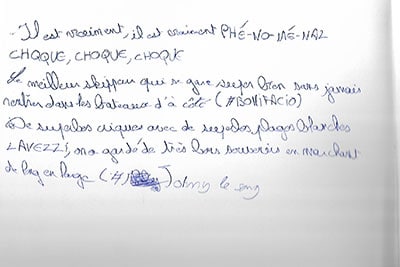 - Il est vraiment, il est vraiment PHÉ-NO-MÉ-NAL
CHOQUE, CHOQUE, CHOQUE
Le meilleur skippeur qui se gare super bien sans jamais
rentrer dans les bateaux d'à côté (#BONIFACIO)
De superbes criques avec de superbes plages blanches
LAVEZZI, on a gardé de très bons souvenirs en marchant
de long en large (# Johny le